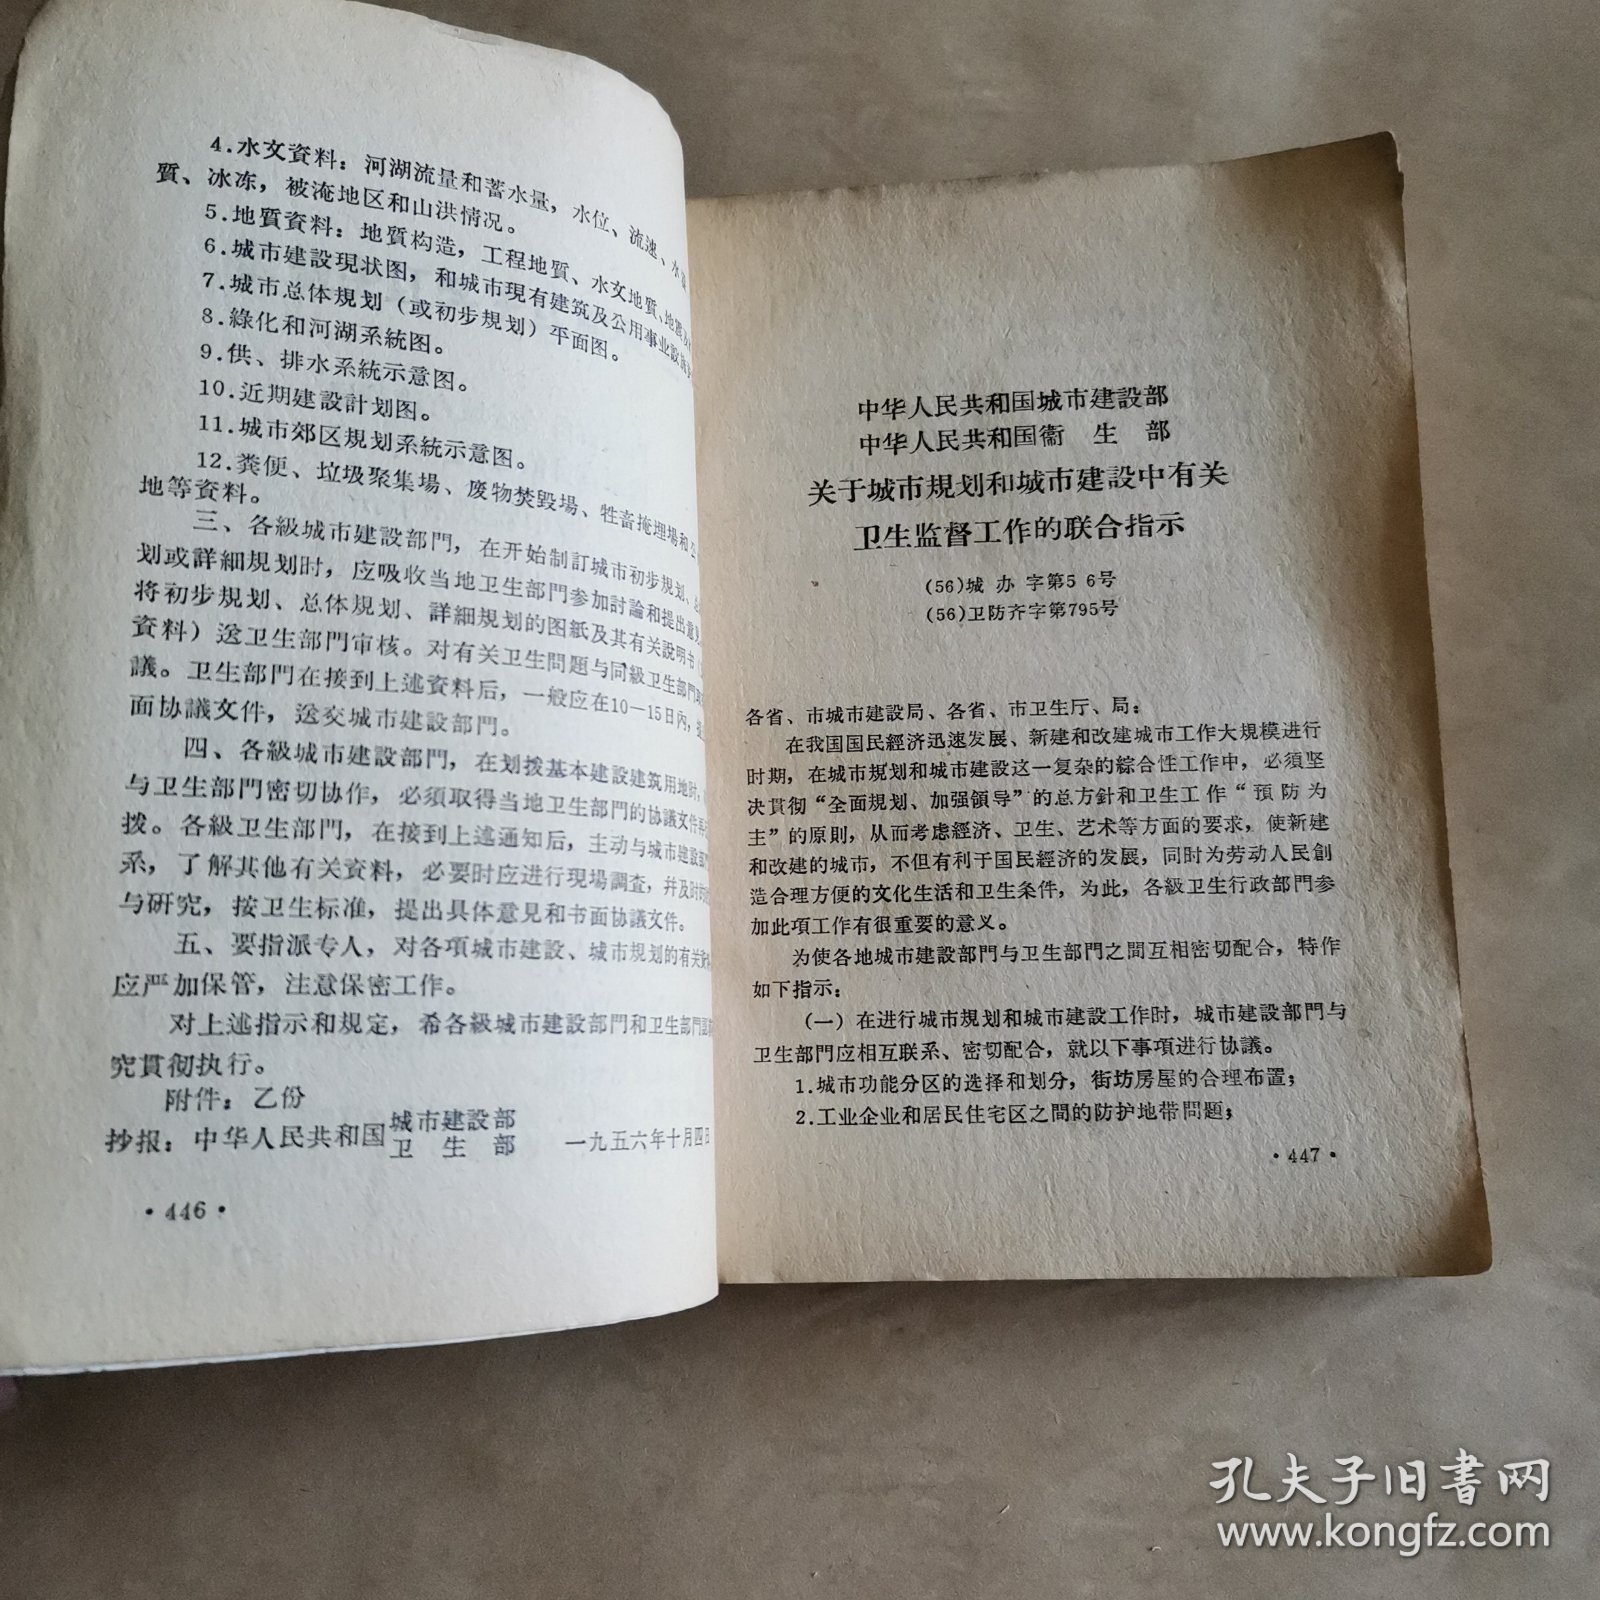 4.水文資料：河湖流量和蓄水量，水位、流速、水
質、冰冻，被淹地区和山洪情况。
5.地質資料：地質构造，工程地質、水文地質、地
6.城市建設現状图，和城市現有建筑及公用事业設
7.城市总体規划（或初步規划）平面图。
8.綠化和河湖系統图。
9.供、排水系統示意图。
10.近期建設計划图。
11.城市郊区規划系統示意图。
12.粪便、垃圾聚集場、废物焚毀場、牲畜掩埋場和
地等資料。
三、各級城市建設部門，在开始制訂城市初步規划、
划或詳細規划时，应吸收当地卫生部門参加討論和提出意見
将初步規划、总体規划、詳細規划的图紙及其有关說明书（
資料）送卫生部門审核。对有关卫生問題与同級卫生部門取
議。卫生部門在接到上述資料后，一般应在10—15日內，
面协議文件，送交城市建設部門。
四、各級城市建設部門，在划拨基本建設建筑用地时，
与卫生部門密切协作，必須取得当地卫生部門的协議文件再
拨。各級卫生部門，在接到上述通知后，主动与城市建設部
系，了解其他有关資料，必要时应进行現場調査，幷及时
与研究，按卫生标准，提出具体意見和书面协議文件。
五、要指派专人，对各項城市建設、城市規划的有关資
应严加保管，注意保密工作。
对上述指示和規定，希各級城市建設部門和卫生部門
究貫彻执行。
附件：乙份
抄报：中华人民共和国城市建設部
卫生部
一九五六年十月四日
·446·
中华人民共和国城市建設部
中华人民共和国衞 生 部
关于城市規划和城市建設中有关
卫生监督工作的联合指示
(56)城 办 字第5 6号
(56)卫防齐字第795号
各省、市城市建設局、各省、市卫生厅、局：
在我国国民經济迅速发展、新建和改建城市工作大規模进行
时期，在城市規划和城市建設这一复杂的綜合性工作中，必須坚
决貫彻“全面規划、加强領导”的总方針和卫生工作“預防为
主”的原則，从而考虑經济、卫生、艺术等方面的要求，使新建
和改建的城市，不但有利于国民經济的发展，同时为劳动人民創
造合理方便的文化生活和卫生条件，为此，各級卫生行政部門参
加此項工作有很重要的意义。
为使各地城市建設部門与卫生部門之間互相密切配合，特作
如下指示：
（一）在进行城市規划和城市建設工作时，城市建設部門与
卫生部門应相互联系、密切配合，就以下事項进行协議。
1.城市功能分区的选择和划分，街坊房屋的合理布置；
2.工业企业和居民住宅区之間的防护地带問題；
·447·
孔夫子旧書网
www.kongfz.com